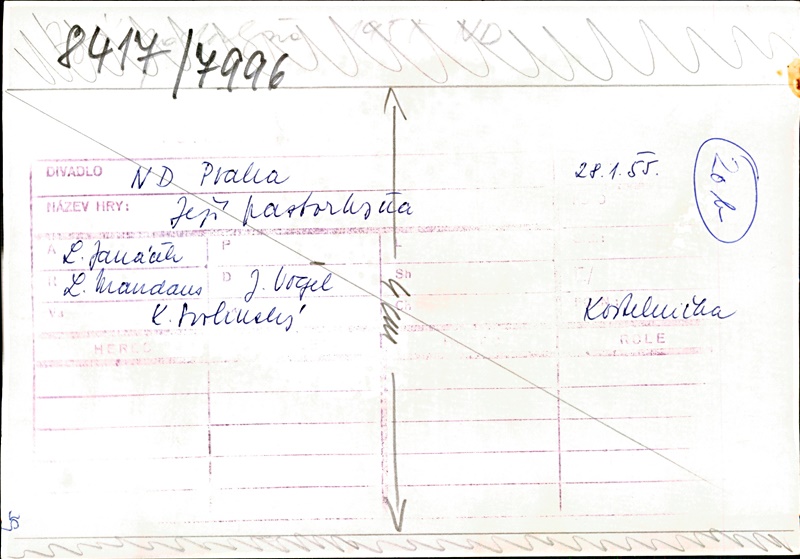 8417/7996
DIVADLO ND Praha 28.1.55.
20 h
NÁZEV HRY: Její pastorkyňa
A L. Janáček P
R L. Mandaus D J. Vogel Sh
V K. Svolinský Ch Kostelnička
4 cm
HEREC ROLE